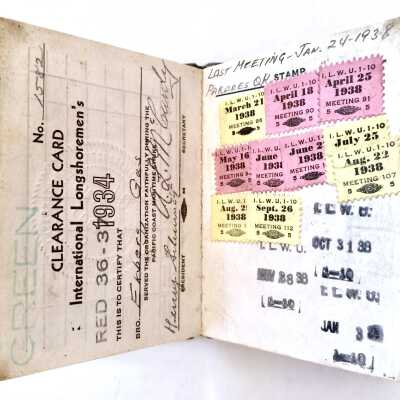 No. 1582
CLEARANCE CARD
International Longshoremen's
RED 36-3 1934
GREEN
THIS IS TO CERTIFY THAT
BRO.
SERVED THE ORGANIZATION FAITHFULLY DURING THE
PACIFIC COAST MARITIME STRIKE
Henry
PRESIDENT
SECRETARY
LAST MEETING - JAN. 24-1938
PARADES OK STAMP
I. L. W. U. 1-10
March 21
1938
MEETING 88
I. L. W. U. 1-10
April 18
1938
MEETING 90
5 5
I. L. W. U. 1-10
April 25
1938
MEETING 91
5 5
I. L. W. U.
May 16
1938
MEETING 9
I. L. W. U.
June
1938
MEETING
I. L. W. U. 1-10
June 2
1938
MEETING
I. L. W. U. 1-10
July 25
I. L. W. U. 1-10
Aug. 22
1938
MEETING 107
5 5
I. L. W. U. 1
Aug. 2
1938
MEETING 1
I. L. W. U. 1-10
Sept. 26
1938
MEETING 112
5 5
I. L. W. U.
I. L. W. U. OCT 31 38
1-10
NOV 28 38
1-10
I. L. W. U.
JAN 3 39
1-10